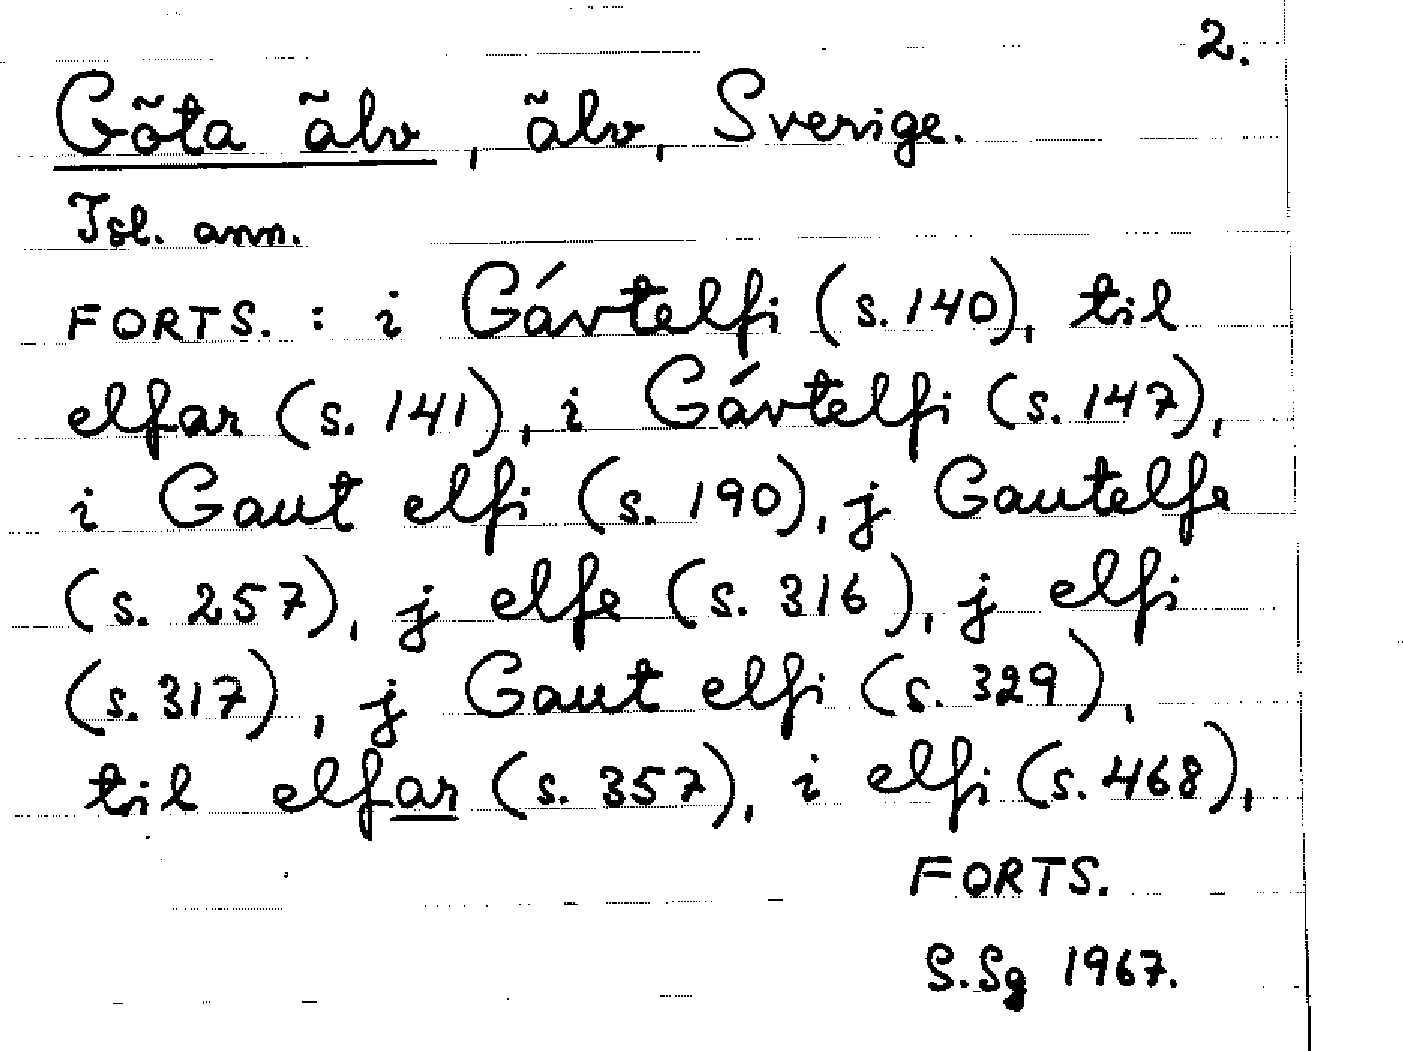 2.
Göta älv, älv, Sverige.
Isl. ann.
FORTS. : i Gávtelfi (s. 140), til
elfar (s. 141), i Gávtelfi (s. 147),
i Gaut elfi (s. 190), j Gautelfe
(s. 257), j elfe (s. 316), j elfi
(s. 317), j Gaut elfi (s. 329),
til elfar (s. 357), i elfi (s. 468),
FORTS.
S.Sg 1967.